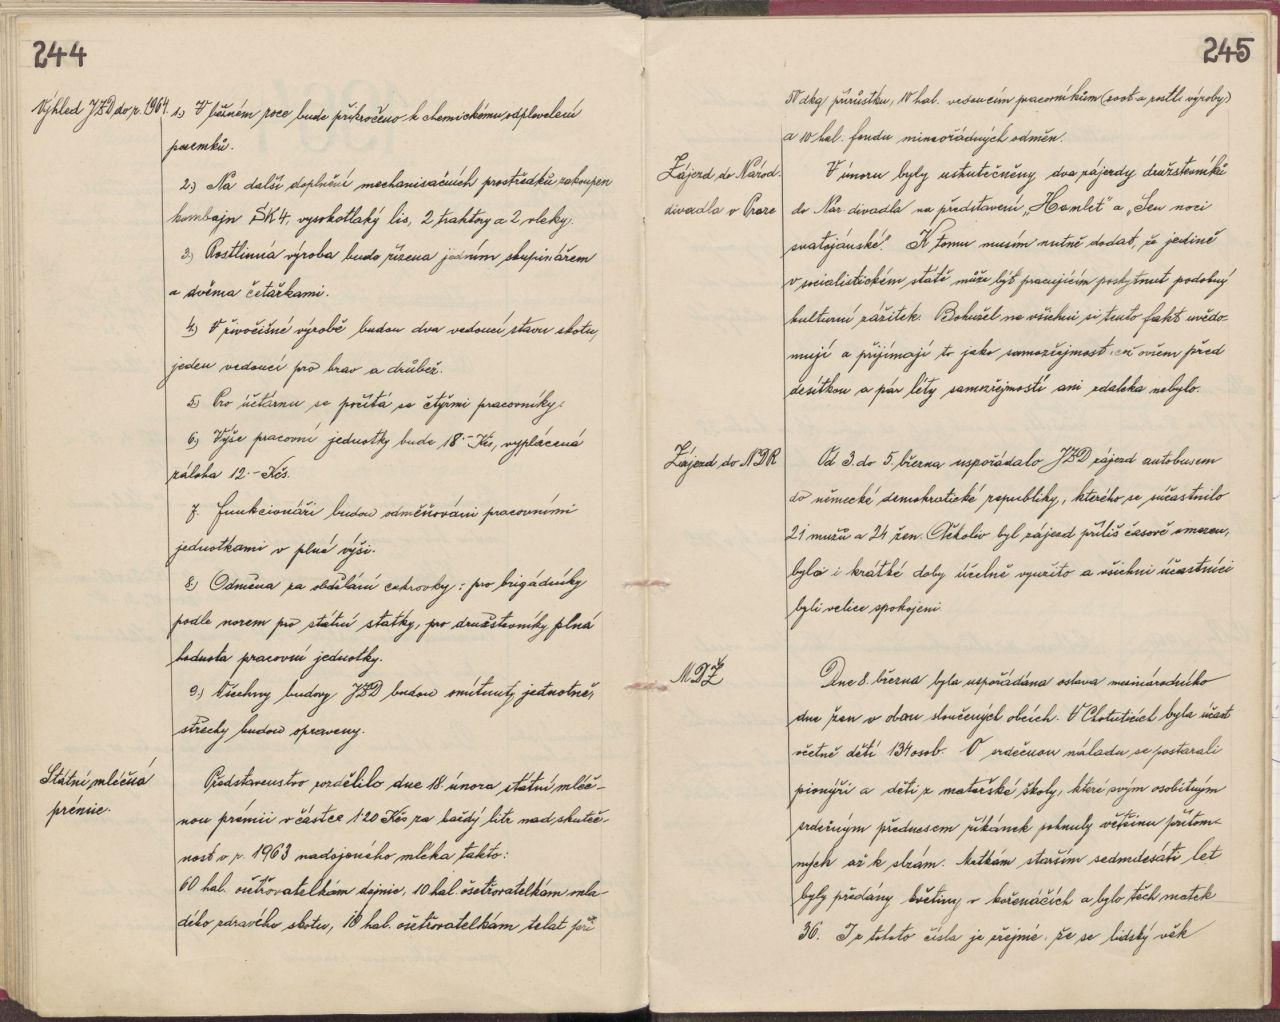 244
Výhled JZD do r. 1964.
1.) V běžném roce bude přikročeno k chemickému odplevelení
pozemků.
2.) Na další doplnění mechanisačních prostředků zakoupen
kombajn ŠK4, vysokotlaký lis, 2 traktory a 2 vleky.
3.) Rostlinná výroba bude řízena jedním skupinářem
a dvěma četařkami.
4.) V živočišné výrobě budou dva vedoucí stavu skotu,
jeden vedoucí pro brav a drůbež.
5.) Pro účtárnu se počítá se čtyřmi pracovníky.
6.) Výše pracovní jednotky bude 18.- Kčs, vyplácená
záloha 12.- Kčs.
7. Funkcionáři budou odměňováni pracovními
jednotkami v plné výši.
8.) Odměna za obdělání cukrovky: pro brigádníky
podle norem pro státní statky, pro družstevníky plná
hodnota pracovní jednotky.
9.) Všechny budovy JZD budou omítnuty jednotně,
střechy budou opraveny.
Státní mléčná
prémie.
Představenstvo rozdělilo dne 18. února státní mléč-
nou prémii v částce 1·20 Kčs za každý litr nad skuteč-
nost v r. 1963 nadojeného mléka takto:
60 hal. ošetřovatelkám dojnic, 10 hal. ošetřovatelkám mla-
dého zdravého skotu, 10 hal. ošetřovatelkám telat při
245
50 dkg přírůstku, 10 hal. vedoucím pracovníkům (zoot. a rostl. výroby)
a 10 hal. fondu mimořádných odměn.
Zájezd do Národ.
divadla v Praze
V únoru byly uskutečněny dva zájezdy družstevníků
do Nár. divadla na představení „Hamlet" a „Sen noci
svatojánské". K tomu musím nutně dodat, že jedině
v socialistickém státě může být pracujícím poskytnut podobný
kulturní zážitek. Bohužel ne všichni si tento fakt uvědo-
mují a přijímají to jako samozřejmost, což ovšem před
desítkou a pár léty samozřejmostí ani zdaleka nebylo.
Zájezd do NDR
Od 3. do 5. března uspořádalo JZD zájezd autobusem
do německé demokratické republiky, kterého se súčastnilo
21 mužů a 24 žen. Ačkoliv byl zájezd příliš časově omezen,
bylo i krátké doby účelně využito a všichni účastníci
byli velice spokojeni.
MDŽ
Dne 8. března byla uspořádána oslava mezinárodního
dne žen v obou sloučených obcích. V Chotuticích byla účast
včetně dětí 134 osob. O srdečnou náladu se postarali
pionýři a děti z mateřské školy, které svým osobitným
srdečným přednesem říkánek pohnuly většinu přítom-
ných až k slzám. Matkám starším sedmdesáti let
byly předány květiny v kořenáčích a bylo těch matek
36. Z tohoto čísla je zřejmé, že se lidský věk